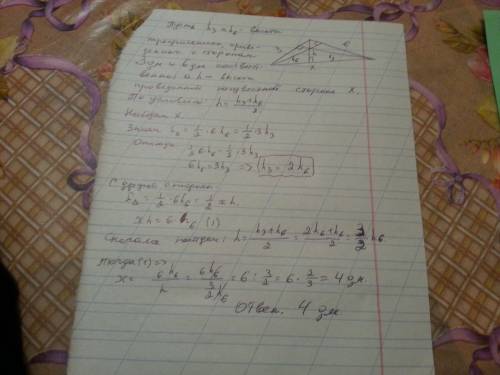 Пусть h₃ и h₆ - высоты
треугольника, прове-
денные к сторонам
3 дм и 6 дм соответ-
венно а h - высота
проведеная к неизвестной стороне x.
По условию: h = (h₃+h₆)/2
Найдем x.
3 6 h₃ h₆ h x
S△ = 1/2 · 6h₆ = 1/2 · 3h₃
Отсюда
1/2 6h₆ = 1/2 · 3h₃
6h₆ = 3h₃ => h₃ = 2h₆
С другой стороны
S△ = 1/2 · 6h₆ = 1/2 xh.
xh = 6h₆ (1)
Сначала найдем: h = (h₃+h₆)/2 = (2h₆+h₆)/2 = 3/2 h₆
тогда (1) =>
x = 6h₆/h = 6h₆/(3/2 h₆) = 6 : 3/2 = 6 · 2/3 = 4 дм.
Ответ. 4 дм